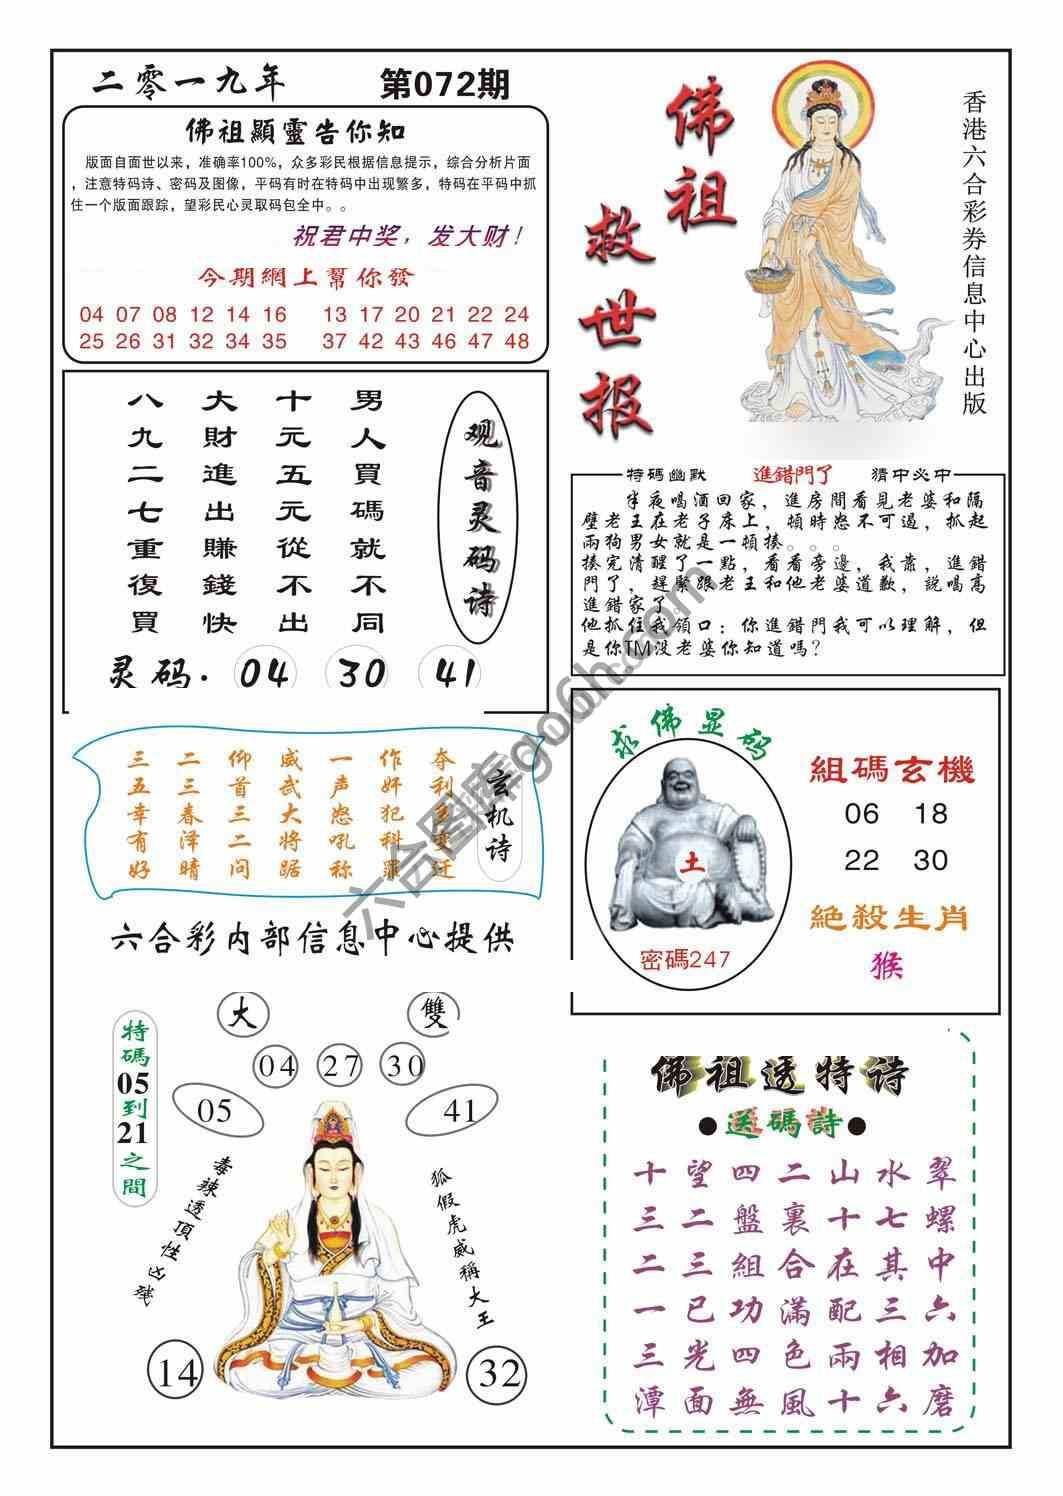 二零一九年 第072期
佛祖顯靈告你知
版面自面世以来，准确率100%，众多彩民根据信息提示，综合分析片面
，注意特码诗、密码及图像，平码有时在特码中出现繁多，特码在平码中抓
住一个版面跟踪，望彩民心灵取码包全中。。
祝君中奖，发大财！
今期網上幫你發
04 07 08 12 14 16 13 17 20 21 22 24
25 26 31 32 34 35 37 42 43 46 47 48
佛祖
救世报
香港六合彩券信息中心出版
男人買碼就不同
十元五元從不出
大財進出賺錢快
八九二七重復買
观音灵码诗
灵码. 04 30 41
特碼幽默 進錯門了 猜中必中
半夜喝酒回家，進房間看見老婆和隔
壁老王在老子床上，頓時怒不可遏，抓起
兩狗男女就是一頓揍。。。
揍完清醒了一點，看看旁邊，我靠，進錯
門了，趕緊跟老王和他老婆道歉，説喝高
進錯家了
他抓住我領口：你進錯門我可以理解，但
是你TM没老婆你知道嗎？
玄机诗
作奸犯科罪
一声怒吼称
威武大将踞
仰首三二问
二三春泽晴
三五幸有好
求佛显码
土
密碼247
組碼玄機
06 18
22 30
絕殺生肖
猴
六合彩内部信息中心提供
大 雙
04 27 30
05 41
特碼05到21之間
毒辣透頂性凶殘
狐假虎威稱大王
14 32
佛祖透特诗
●送碼詩●
十望四二山水翠
三二盤裏十七螺
二三組合在其中
一已功滿配三六
三光四色兩相加
潭面無風十六磨
六合图库go66h.com